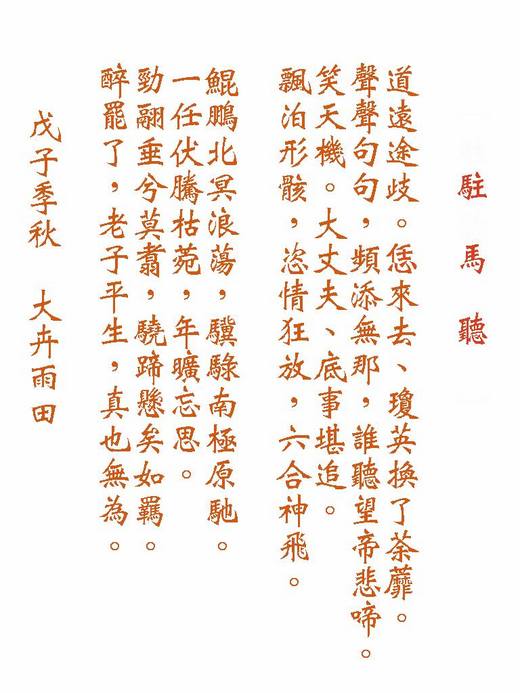 駐馬聽
道遠途歧。恁來去、瓊英換了荼蘼。
聲聲句句，頻添無那，誰聽望帝悲啼。
笑天機。大丈夫、底事堪追。
飄泊形骸，恣情狂放，六合神飛。
鯤鵬北冥浪蕩，驥騄南極原馳。
一任伏騰枯菀，年曠忘思。
勁翮垂兮莫翥，驍蹄懸矣如羈。
醉罷了，老子平生，真也無為。
戊子季秋　大卉雨田